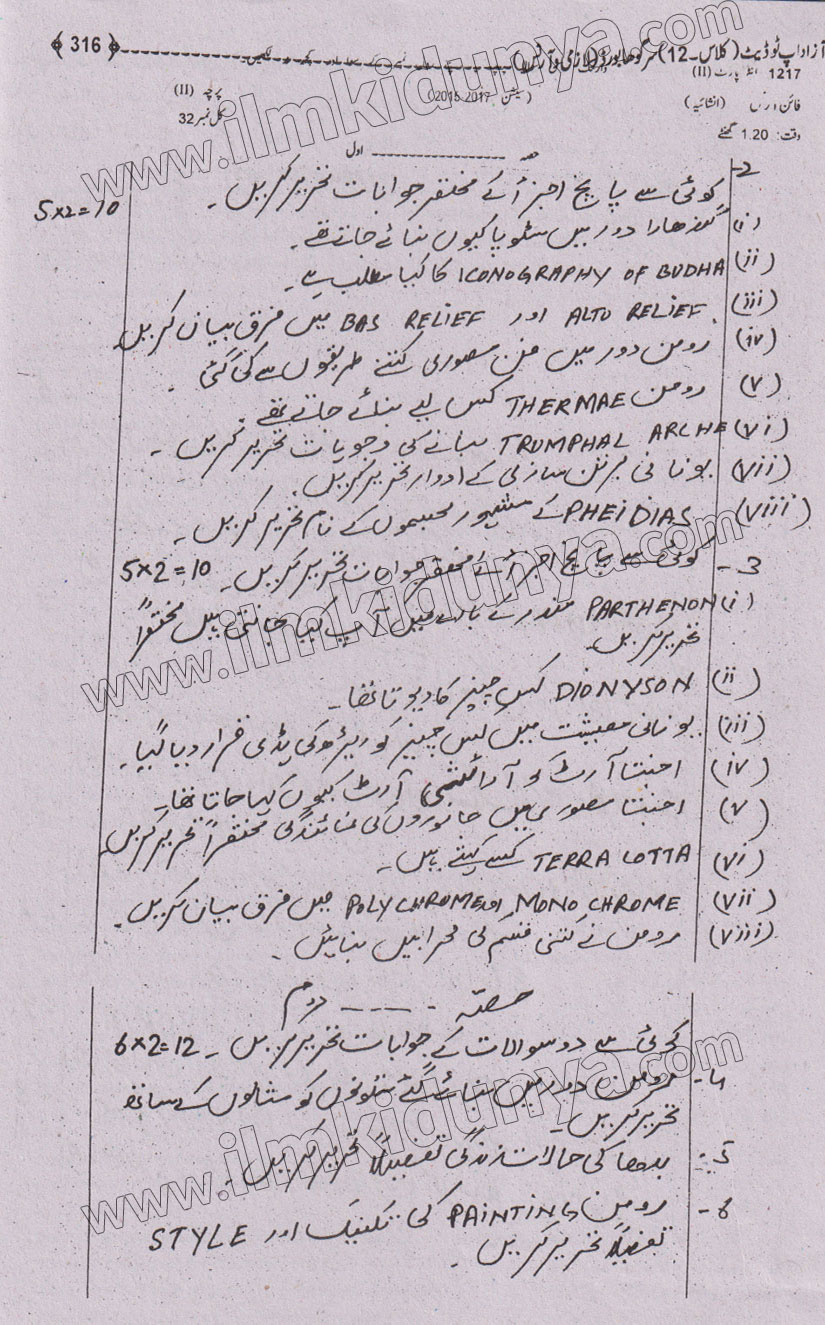 ﴾ 316 ﴿ آزاد اپ ٹو ڈیٹ (کلاس۔12) سرگودھا بورڈ (لازمی و آرٹس)
1217 انٹر پارٹ (II) پرچہ (II)
فائن آرٹس (انشائیہ) (سیشن 2015-2017) کل نمبر 32
وقت: 1.20 گھنٹے
حصہ ---------- اول
2- کوئی سے پانچ اجزا کے مختصر جوابات تحریر کریں۔ 5x2=10
(i) گندھارا دور میں سٹوپا کیوں بنائے جاتے تھے۔
(ii) ICONOGRAPHY OF BUDHA کا کیا مطلب ہے۔
(iii) ALTO RELIEF اور BAS RELIEF میں فرق بیان کریں
(iv) رومن دور میں فن مصوری کتنے طریقوں سے کی گئی۔
(v) رومن THERMAE کس لیے بنائے جاتے تھے۔
(vi) TRUMPHAL ARCHE بنانے کی وجوہات تحریر کریں۔
(vii) یونانی برتن سازی کے ادوار تحریر کریں۔
(viii) PHEIDIAS کے مشہور مجسموں کے نام تحریر کریں۔
3- کوئی سے پانچ اجزا کے مختصر جوابات تحریر کریں۔ 5x2=10
(i) PARTHENON مندر کے بارے میں آپ کیا جانتے ہیں مختصراً
تحریر کریں۔
(ii) DIONYSON کس چیز کا دیوتا تھا۔
(iii) یونانی معیشت میں کس چیز کو ریڑھ کی ہڈی قرار دیا گیا۔
(iv) اجنتا آرٹ کو آرائشی آرٹ کیوں کہا جاتا تھا۔
(v) اجنتا مصوری میں جانوروں کی نمائندگی مختصراً تحریر کریں۔
(vi) TERRA COTTA کسے کہتے ہیں۔
(vii) MONO CHROME اور POLY CHROME میں فرق بیان کریں۔
(viii) رومن نے کتنی قسم کی محرابیں بنائیں۔
حصہ ------ دوم
کوئی سے دو سوالات کے جوابات تحریر کریں۔ 6x2=12
4- رومن دور میں بنائے گئے ستونوں کو مثالوں کے ساتھ
تحریر کریں۔
5- بدھا کی حالات زندگی تفصیلاً تحریر کریں۔
6- رومن PAINTING کی تکنیک اور STYLE
تفصیلاً تحریر کریں۔
www.ilmkidunya.com
www.ilmkidunya.com
www.ilmkidunya.com